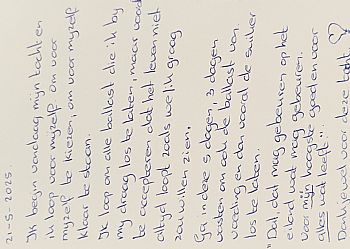 21-5-2025.
Ik begin vandaag mijn tocht en
ik loop voor mijzelf om voor
mijzelf te kiezen, om voor mijzelf
klaar te staan.
Ik loop om alle ballast die ik bij
mij draag los te laten, maar vooral
te accepteren dat het leven niet
altijd loopt zoals we/ik graag
zou willen zien.
Ga in deze 5 dagen, 3 dagen
vasten om ook de ballast van
voeding en dan vooral de suiker
los te laten.
"Dat, dat mag gebeuren op het
eiland wat mag gebeuren.
voor mijn hoogste goed en voor
alles wat leeft"...
Dankjewel voor deze tocht.